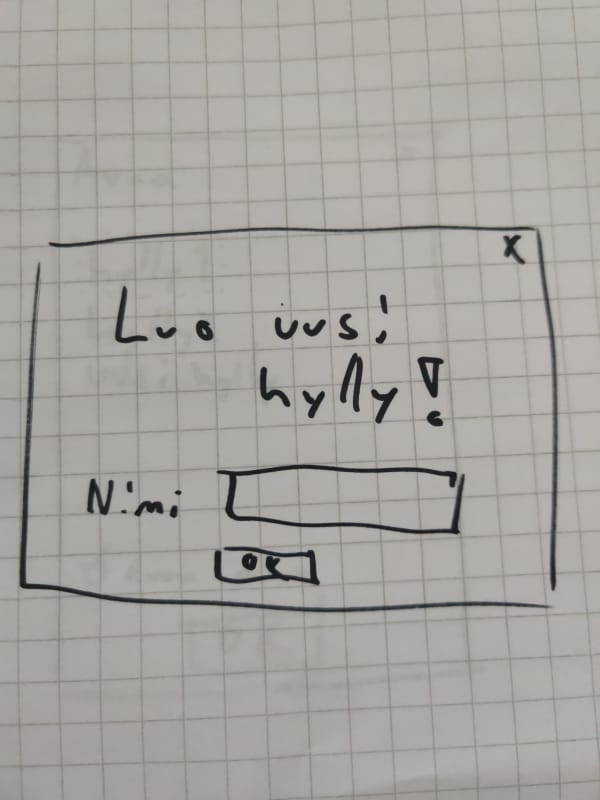 X
Luo uusi
hylly!
Nimi
OK